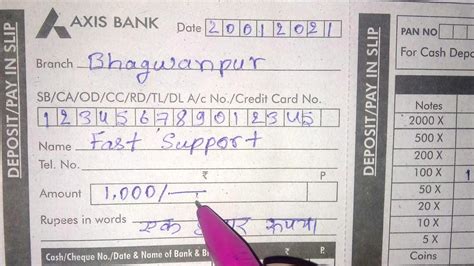 DEPOSIT/PAY IN SLIP
AXIS BANK
Date 20012021
Branch Bhagwanpur
SB/CA/OD/CC/RD/TL/DL A/c No./Credit Card No.
123456789012345
Name Fast Support
Tel. No.
₹ P
Amount 1,000/—
Rupees in words एक हजार रूपया
Cash/Cheque No./Date & Name of Bank & B
DEPOSIT/PAY IN SLIP
PAN NO
For Cash Depo
Notes
2000 X
500 X
200 X
100 X 1
50 X
20 X
10 X